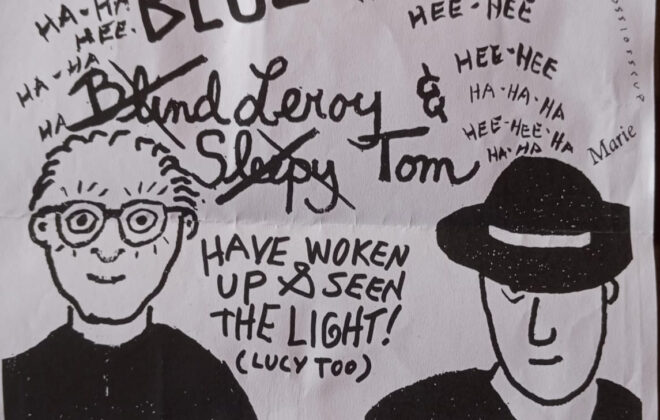 HA-HA
HEE.
HA-HA
HA
HEE-HEE
HEE-HEE
HA-HA-HA
HEE-HEE-HA
HA-HA
Marie
Blind Leroy &
Sleepy Tom
HAVE WOKEN
UP & SEEN
THE LIGHT!
(LUCY TOO)